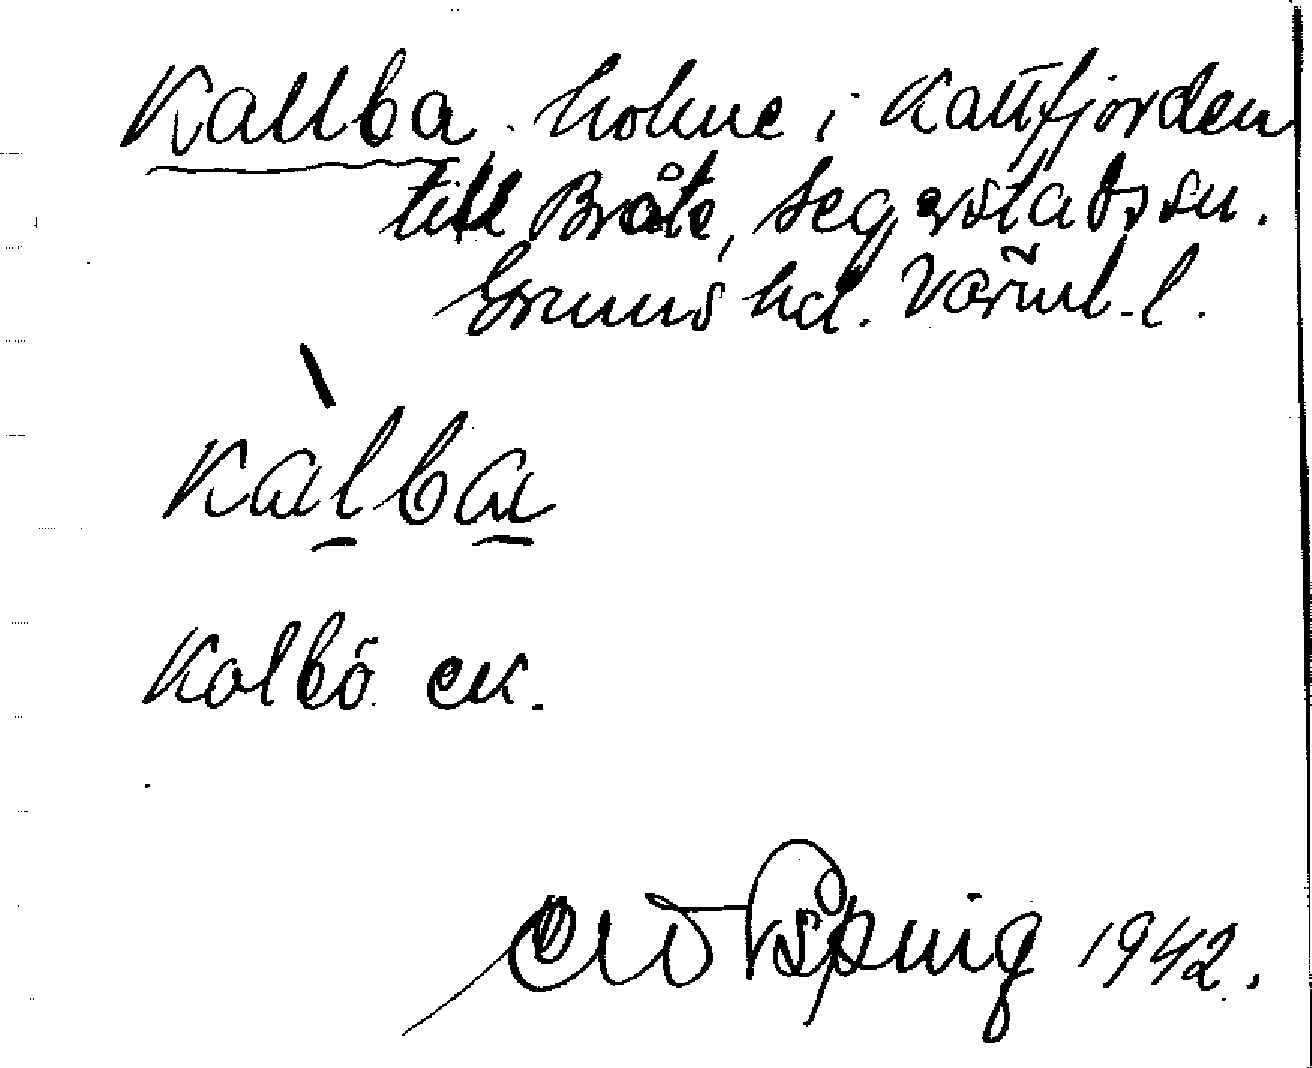 Kallba. holme i Kattfjorden
till Bråte, Segerstads sn.
Grums hd. Värml. l.
Kàlba
Kalbö ek.
1942.